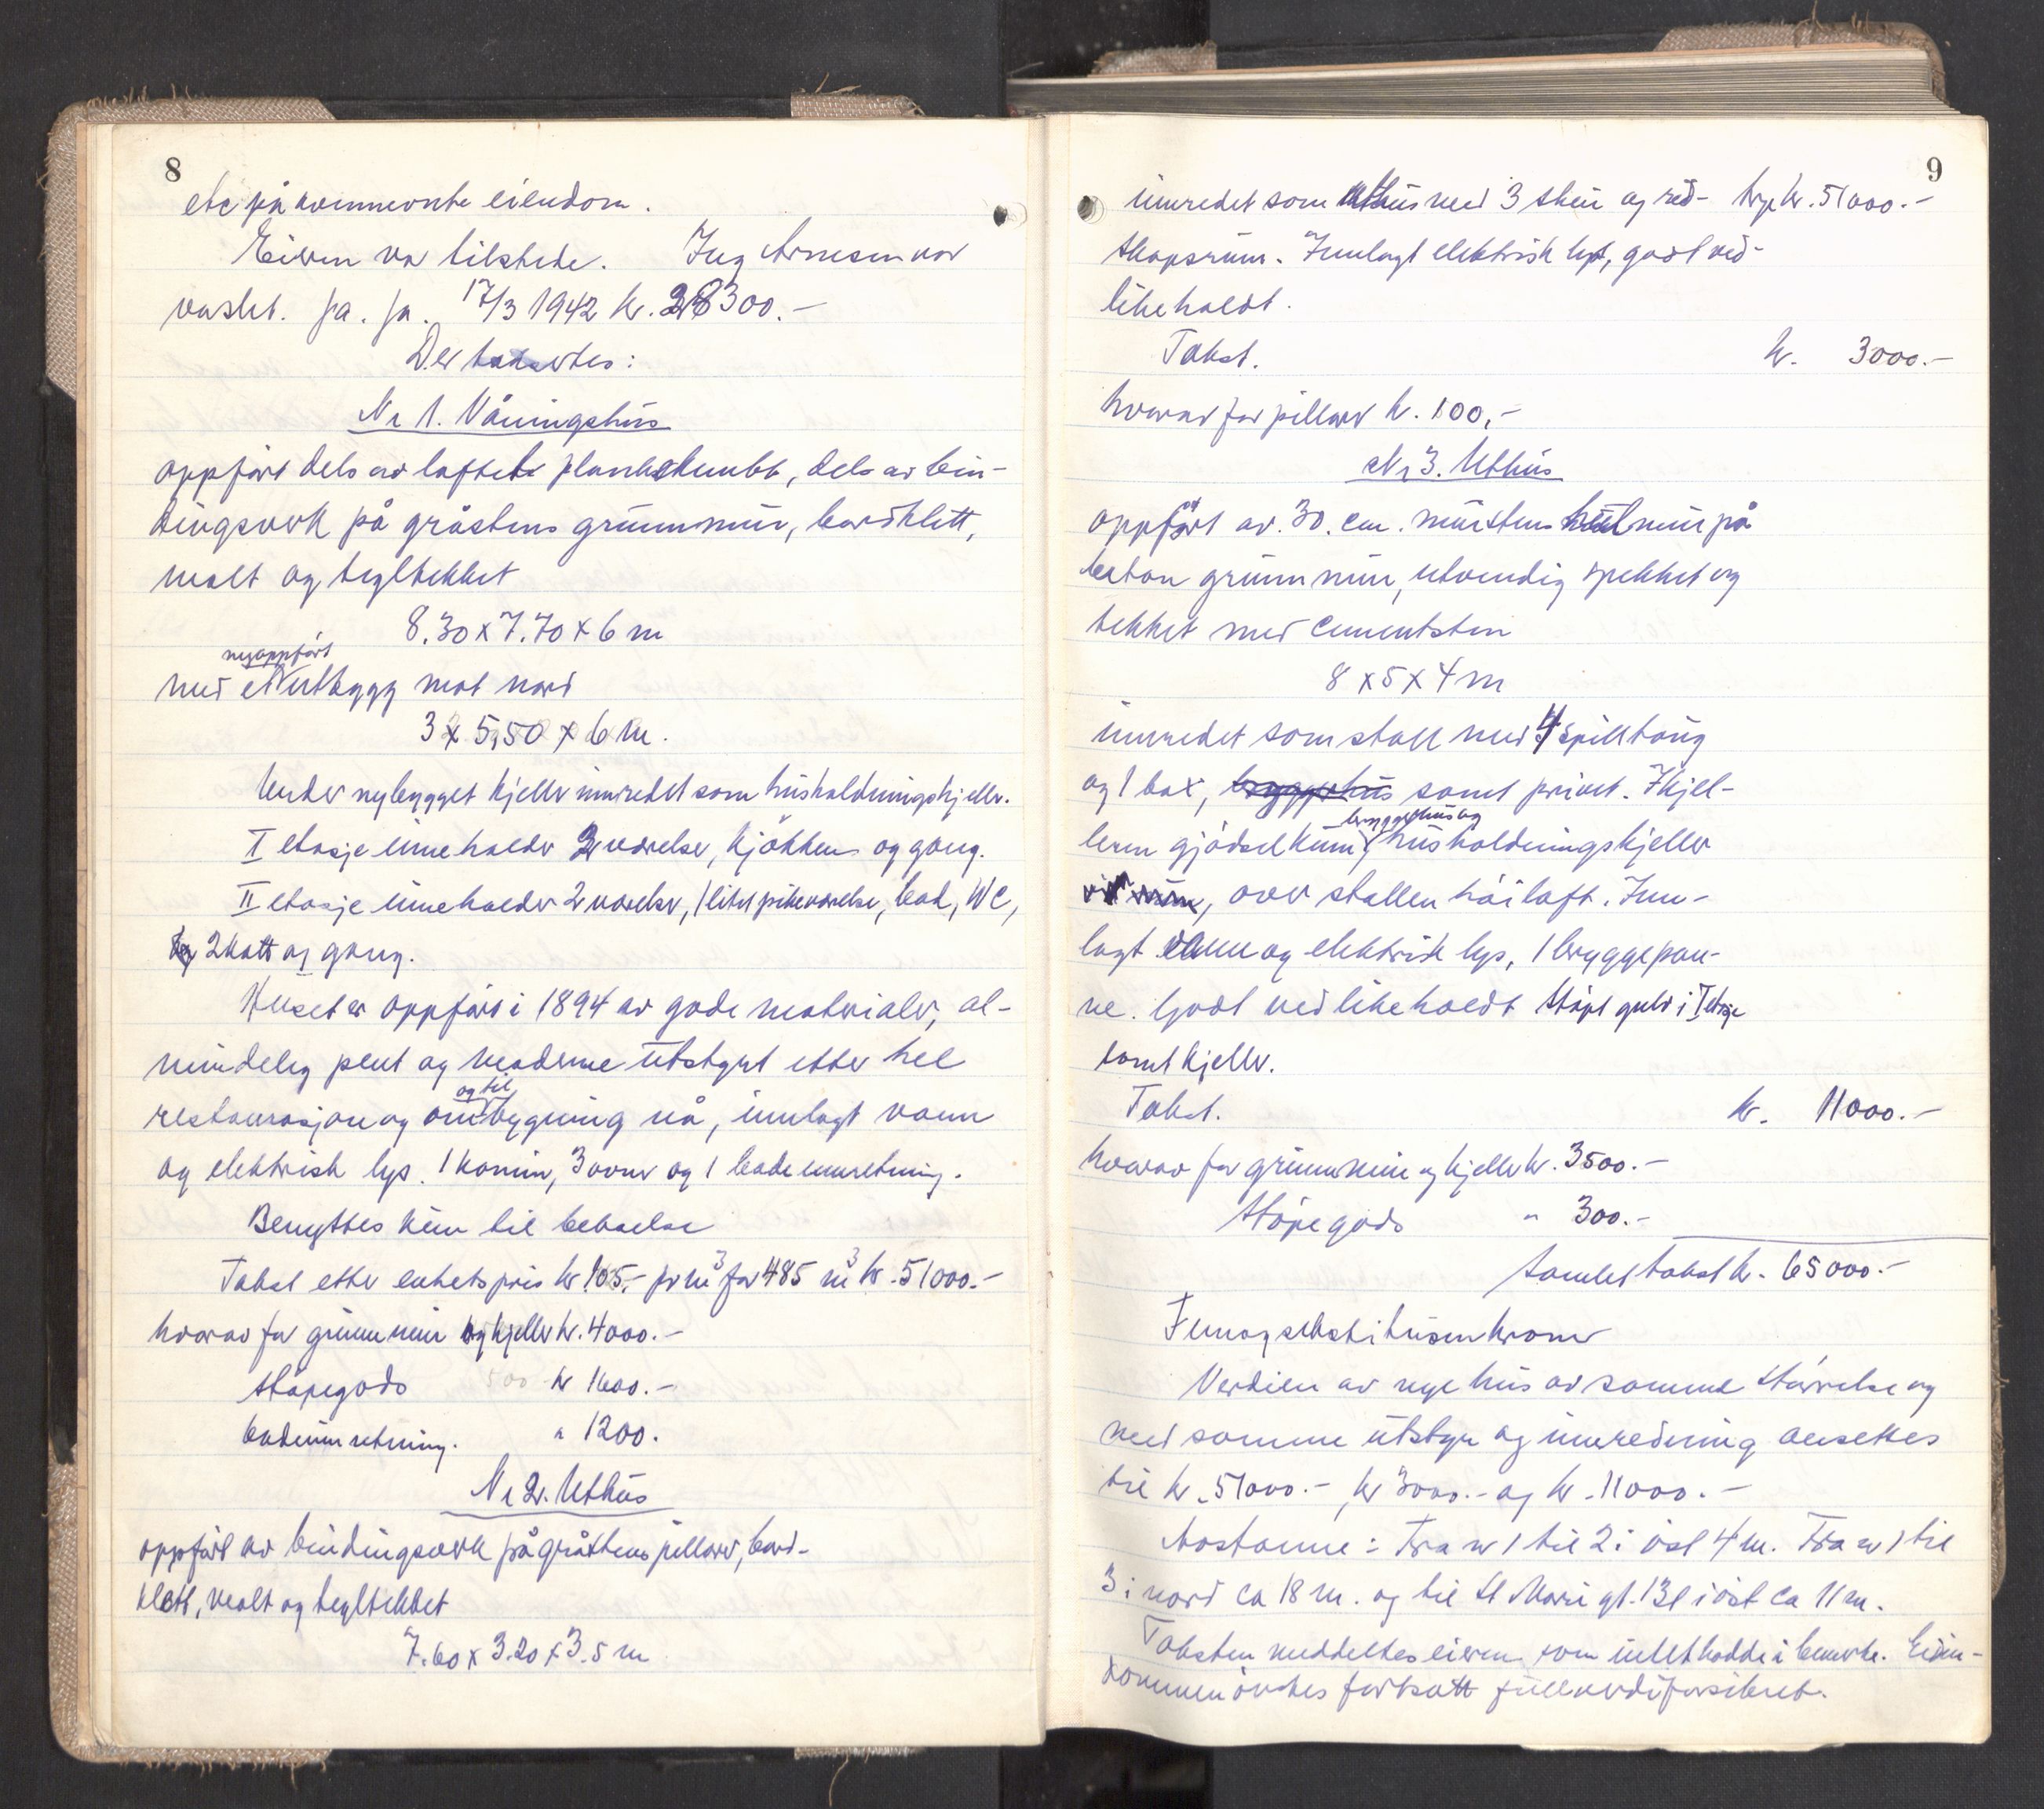 8
etc på ovennevnte eiendom.
Eieren var tilstede. Ing Arnesen var
varslet. Ja. fn. 17/3 1942 kr. 28300.-
Der taksertes:
Nr 1. Våningshus
oppført dels av laftet plankekubb, dels av bin-
dingsverk på gråstens grunnmur, bordklett,
malt og tegltekket
8.30 x 7.70 x 6 m
nyoppført
med et utbygg mot nord
3 x 5,50 x 6 m.
Under nybygget kjeller innredet som husholdningskjeller.
I etasje inneholder 2 værelser, kjøkken og gang.
II etasje inneholder 2 værelser, 1 litet pikeværelse, bad, WC,
2 kott og gang.
Huset er oppført i 1894 av gode materialer, al-
mindelig pent og moderne utstyrt etter hel
og til
restaurasjon og ombygning nå, innlagt vann
og elektrisk lys. 1 kamin, 3 ovner og 1 badeinnretning.
Benyttes kun til beboelse
Takst etter enhetspris kr 105,- pr m³ for 485 m³ kr. 51000.-
hvorav for grunnmur og kjeller kr. 4000.-
støpegods kr 1600.-
badeinnretning. " 1200.
Nr 2. Uthus
oppført av bindingsverk på gråstens pillarer, bord-
klett, malt og tegltekket
7.60 x 3.20 x 3.5 m
9
innredet som uthus med 3 skur og red- Trp kr. 51000.-
skapsrum. Innlagt elektrisk lys, godt ved-
likeholdt.
Takst. kr. 3000.-
hvorav for pillarer kr. 100,-
Nr 3. Uthus
oppført av 30. cm. murstens hulmur på
betong grunnmur, utvendig spekket og
tekket med cementsten
8 x 5 x 4 m
innredet som stall med 4 spilltaug
og 1 box, bryggerhus samt privet. I kjel-
bryggerhus og
leren gjødselkum, husholdningskjeller
, over stallen høiloft. Inn-
lagt vann og elektrisk lys, 1 bryggepan-
ne. Godt vedlikeholdt Støpt gulv i I etasje
samt kjeller.
Takst. kr. 11000.-
hvorav for grunnmur og kjeller kr. 3500.-
Støpegods " 300.-
Samlet takst kr. 65000.-
Femogsekstitusen kroner
Verdien av nye hus av samme størrelse og
med samme utstyr og innredning ansettes
til kr. 51000.-, kr 3000.- og kr. 11000.-
Avstanne: Fra nr 1 til 2 i øst 4 m. Fra nr 1 til
3 i nord ca 18 m. og til St Marie gt. 131 i øst ca 11 m.
Taksten meddeltes eieren som intet hadde å bemerke. Eien-
dommen ønskes fortsatt fullverdiforsikret.